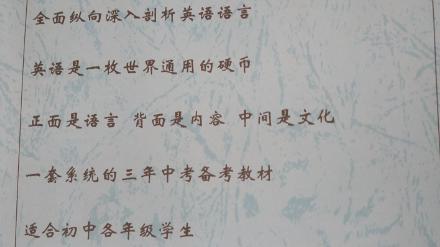 全面纵向深入剖析英语语言
英语是一枚世界通用的硬币
正面是语言 背面是内容 中间是文化
一套系统的三年中考备考教材
适合初中各年级学生